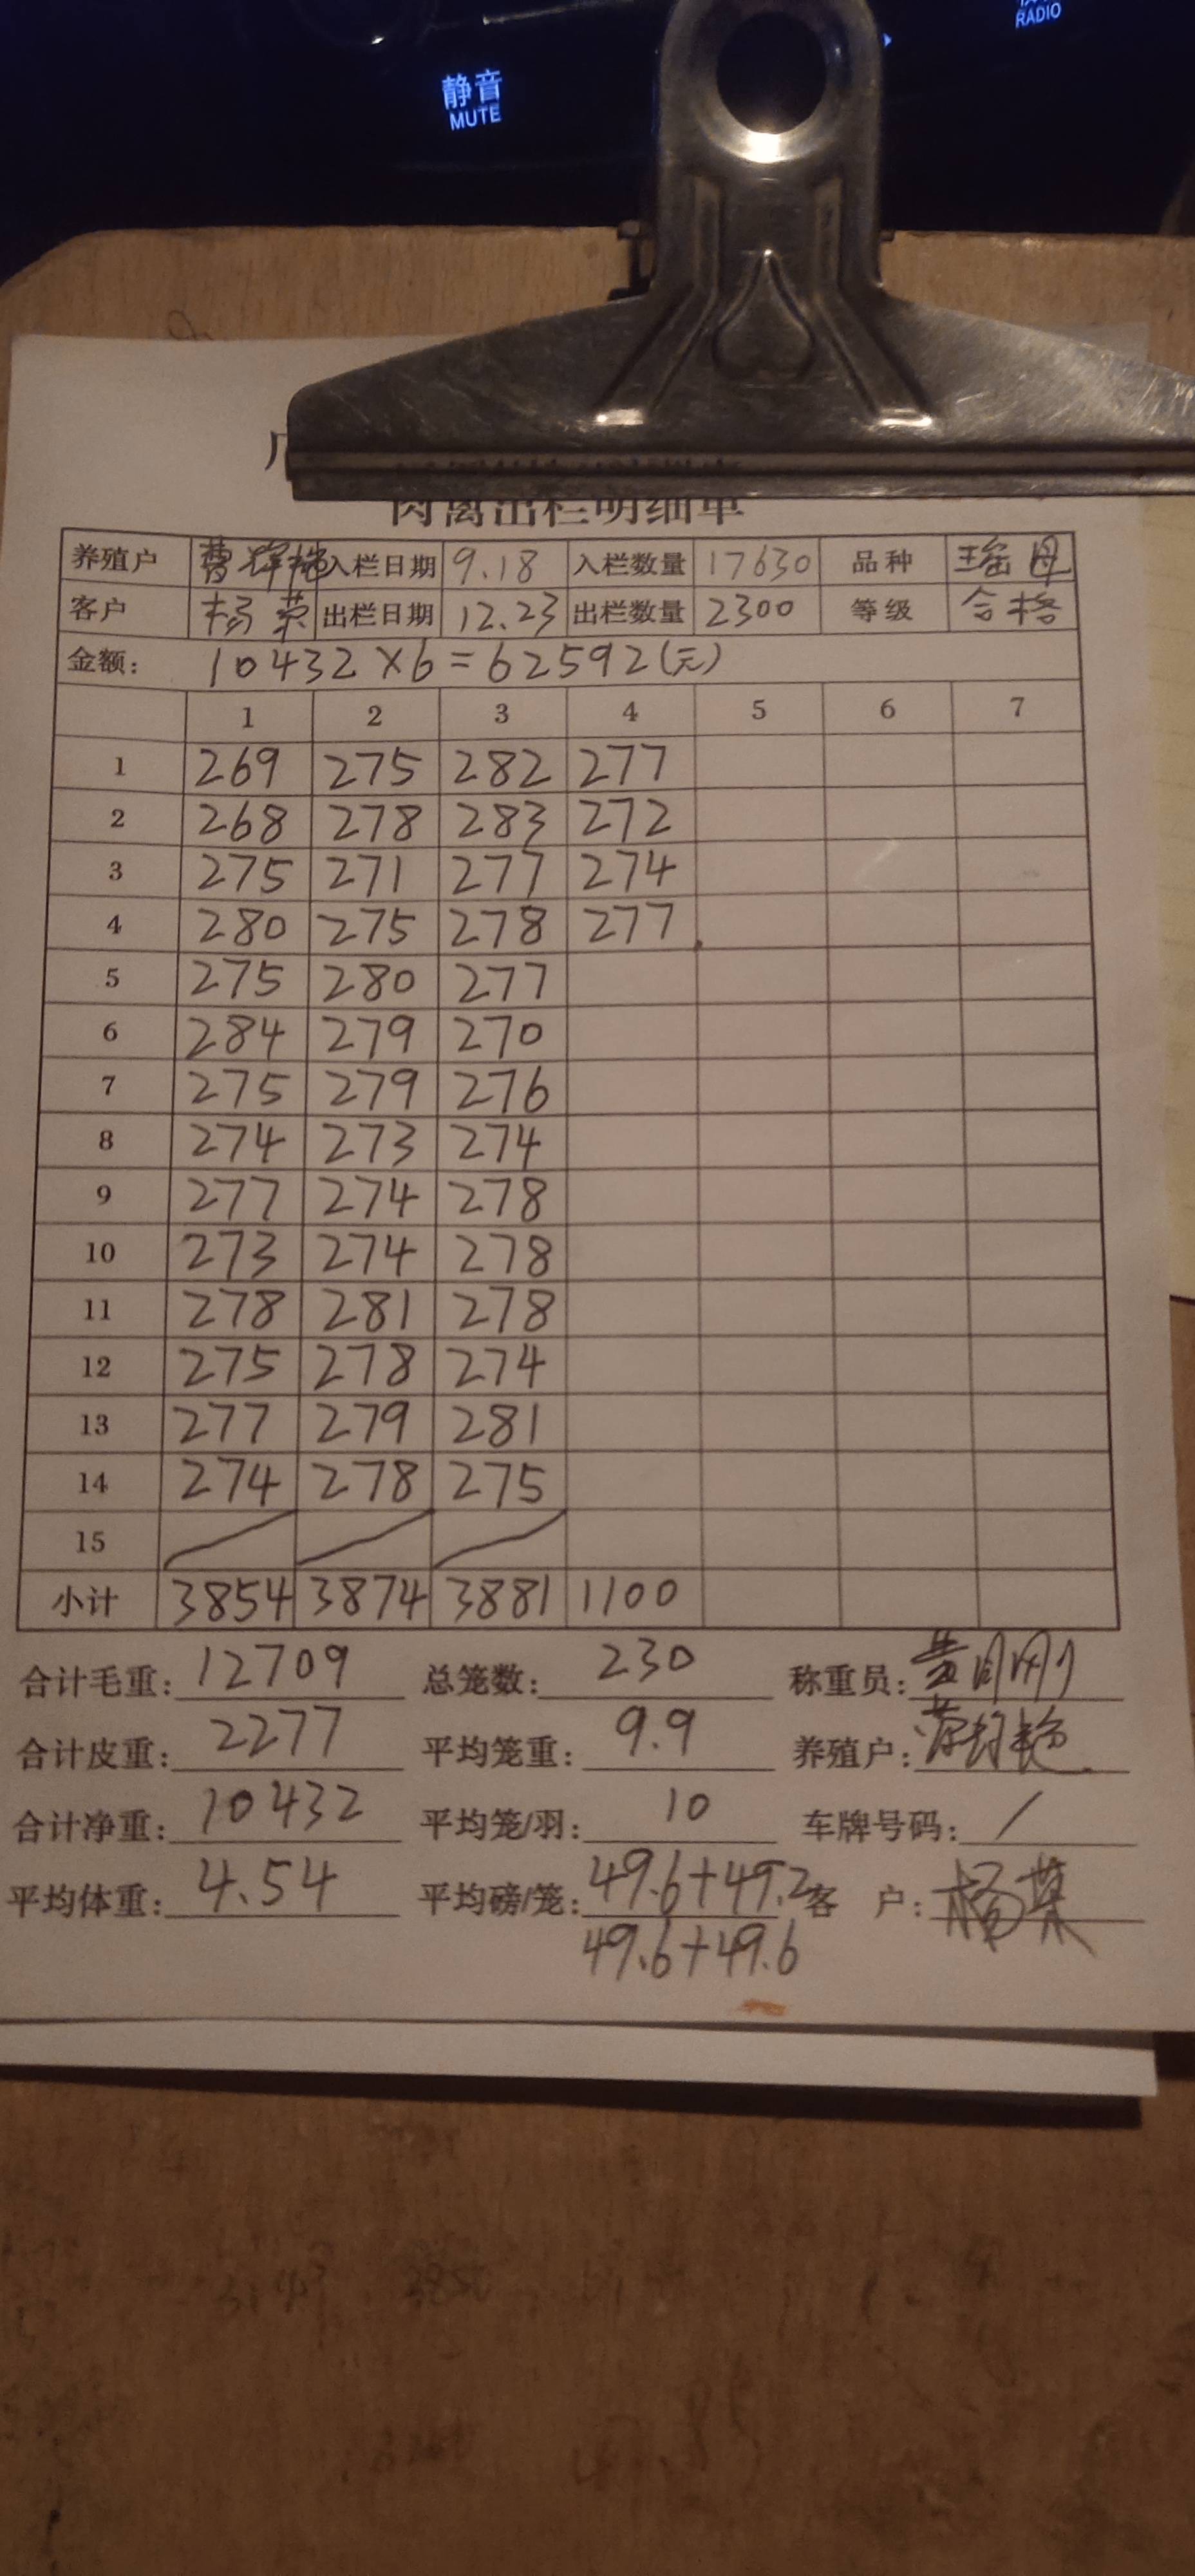 RADIO
静音
MUTE
肉禽出栏明细单
养殖户 入栏日期 9.18 入栏数量 17630 品种 瑶母
客户 杨荣 出栏日期 12.23 出栏数量 2300 等级 合格
金额: 10432×6=62592(元)
1 2 3 4 5 6 7
1 269 275 282 277
2 268 278 283 272
3 275 271 277 274
4 280 275 278 277
5 275 280 277
6 284 279 270
7 275 279 276
8 274 273 274
9 277 274 278
10 273 274 278
11 278 281 278
12 275 278 274
13 277 279 281
14 274 278 275
15
小计 3854 3874 3881 1100
合计毛重: 12709 总笼数: 230 称重员:
合计皮重: 2277 平均笼重: 9.9 养殖户:
合计净重: 10432 平均笼/羽: 10 车牌号码: /
平均体重: 4.54 平均磅/笼: 49.6+49.2 客户: 杨荣
49.6+49.6